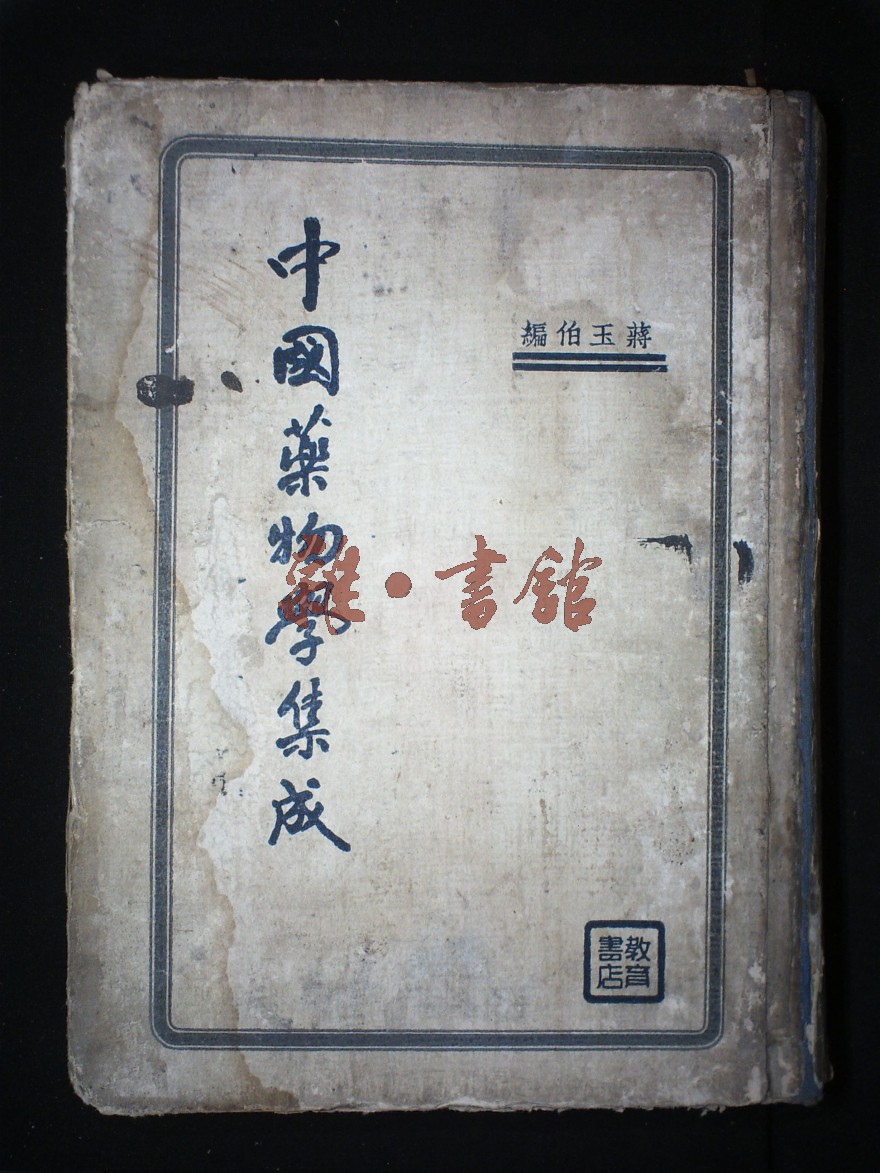 蔣玉伯編
中國藥物學集成
雜·書館
教育
書店